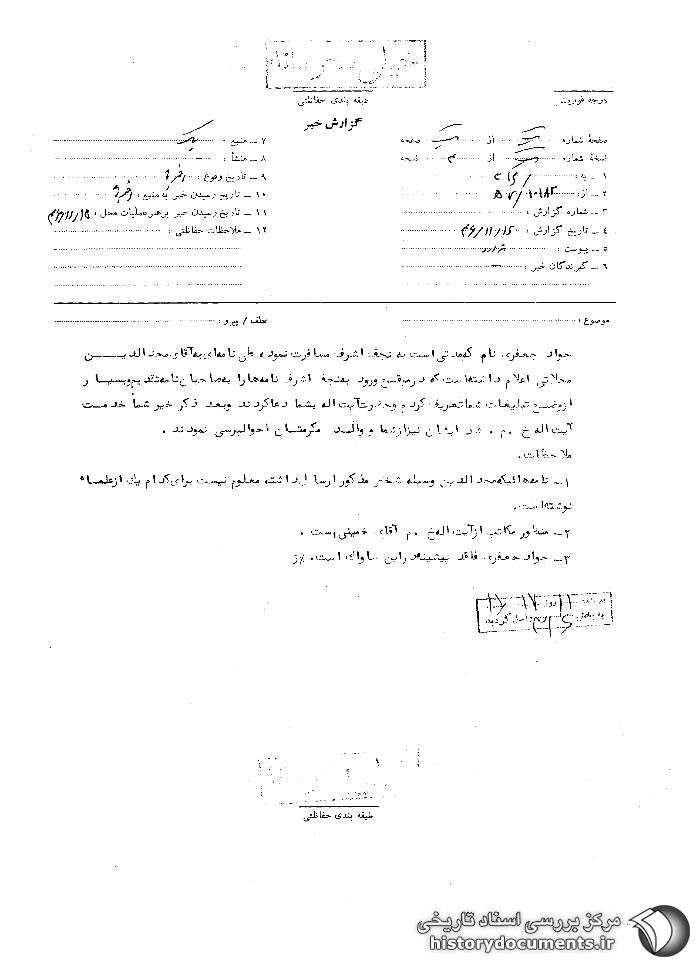 خیلی محرمانه
طبقه بندی حفاظتی
درجه فوریت
گزارش خبر
صفحهٔ شماره یک از یک صفحه
نسخهٔ شماره از نسخه
۱ ـ به :
۲ ـ از:
۳ ـ شماره گزارش :
۴ ـ تاریخ گزارش : ۴۶/۱۱/۱۵
۵ ـ پیوست : ندارد
۶ ـ گیرندگان خبر :
۷ ـ منبع :
۸ ـ منشأ :
۹ ـ تاریخ وقوع : اخیراً
۱۰ ـ تاریخ رسیدن خبر به منبع : اخیراً
۱۱ ـ تاریخ رسیدن خبر برهبر عملیات محل : ۴۶/۱۱/۱۵
۱۲ ـ ملاحظات حفاظتی :
موضوع :
عطف / پیرو :
جواد جعفری نام که مدتی است به نجف اشرف مسافرت نموده طی نامه‌ای به آقای مجدالدین
محلاتی اعلام داشته‌است که در موقع ورود به نجف اشرف نامه‌ها را به صاحبان نامه تقدیم و بسیار
از وضع تبلیغات شما تعریف کردم و حضرت آیت اله بشما دعا کردند و بعد ذکر خیر شما خدمت
آیت اله خ . م . شد ایشان نیز از شما و والد مکرمتان احوالپرسی نمودند .
ملاحظات.
۱ـ نامه‌هائیکه مجدالدین وسیله شخص مذکور ارسال داشته معلوم نیست برای کدام یك از علماء
نوشته‌است.
۲ـ منظور مکاتب از آیت اله خ . م آقای خمینی است .
۳ـ جواد جعفری فاقد پیشینه در این ساواك است. ژ
طبقه بندی حفاظتی
مرکز بررسی اسناد تاریخی
historydocuments.ir